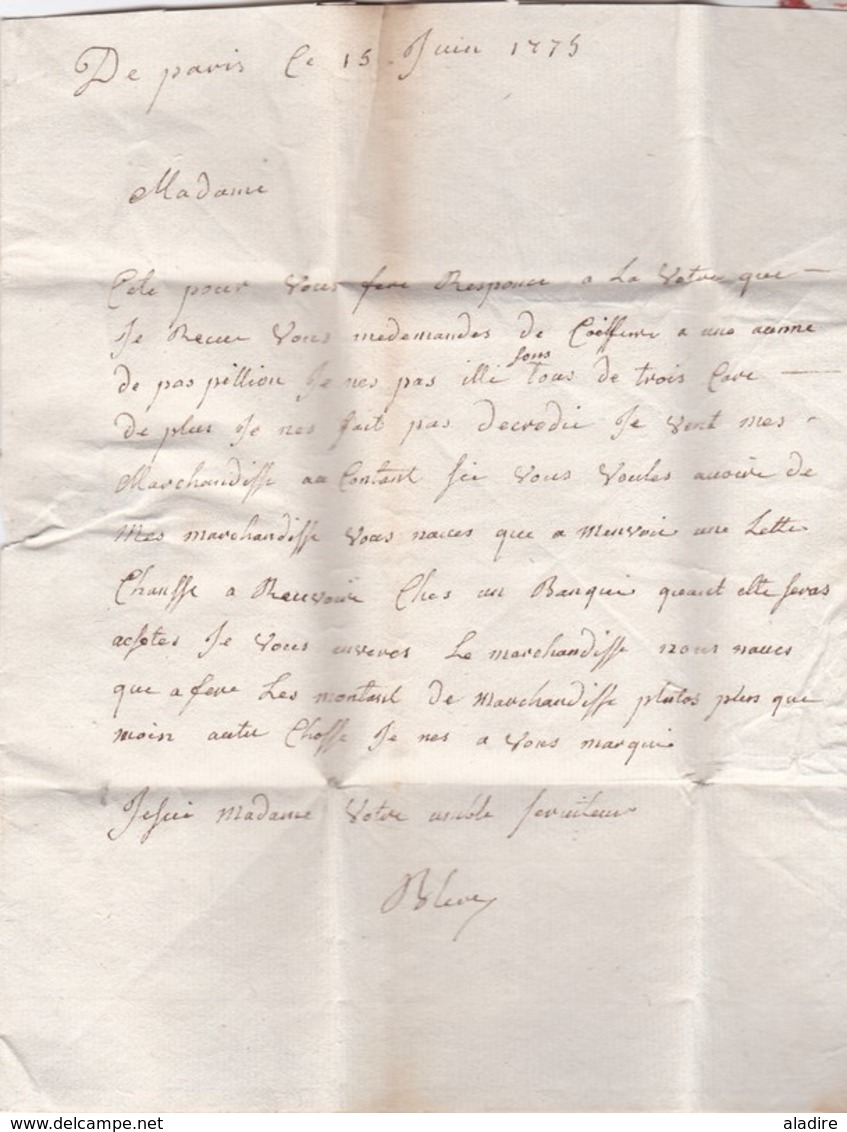 De paris Ce 15 Juin 1775
Madame
Cete pour Vous fere Responce a La Votre que
Je Recue Vous medemandes de Coiffure a une aunne
de pas pillion Je nes pas illi sons tous de trois Care
de plus Je nes fait pas decredie Je Vent mes
Marchandisse au Contant sie Vous Voules avoire de
Mes marchandisse Vous naues que a menvoie une Lettre
Chansse a Reuvoire Ches un Banquie quant elle seras
acsetes Je Vous enveros Le marchandisse nous naues
que a fere Les montant de marchandisse plutos plus que
moin autre Chosse Je nes a Vous marquie
Jesuie Madame Votre umble serviteur
aladire